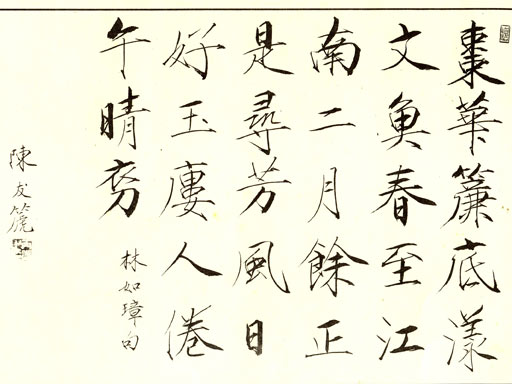 棗華簾底漾
文魚春至江
南二月餘正
是尋芳風日
好玉廔人倦
午晴初
林如璋句
陳友